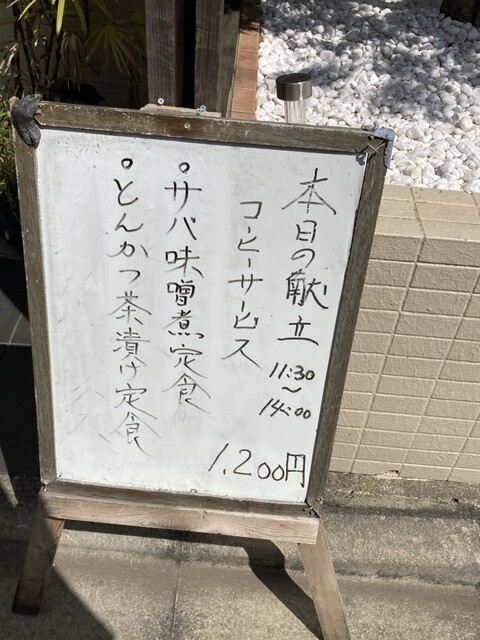 本日の献立
11:30
〜
14:00
コーヒーサービス
○サバ味噌煮定食
○とんかつ茶漬け定食
1,200円